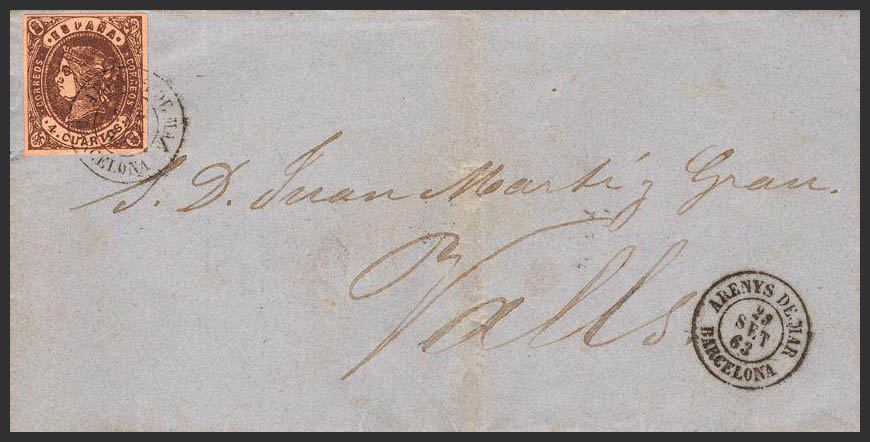 ESPAÑA
CORREOS
CORREOS
4. CUARTOS.
DE MAR
BARCELONA
S. D. Juan Martí y Grau.
Valls
ARENYS DE-MAR
23
SET
63
BARCELONA